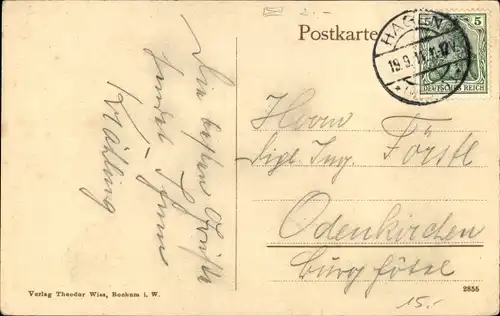 Postkarte
HAGEN
19.9.11.11-12V.
5
DEUTSCHES REICH
Die besten Grüße
sendet Ihnen
Herrn
Dipl. Ing. Förstl
Odenkirchen
Burgfötel
Verlag Theodor Wiss, Bochum i. W.
2855
15.-
2.-